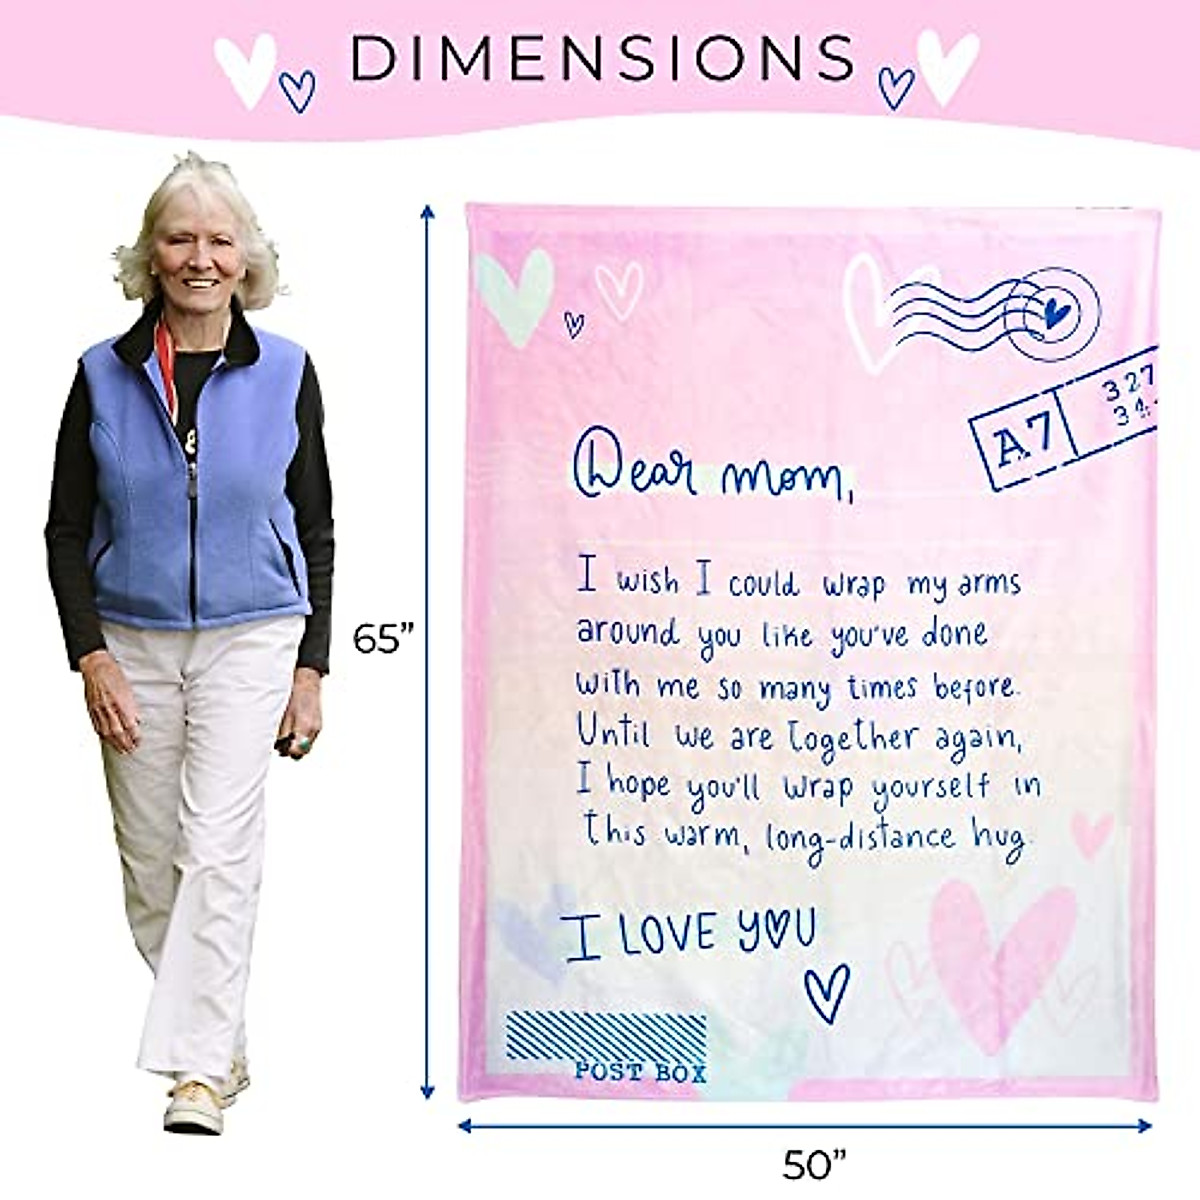 DIMENSIONS
A7
327
34
Dear mom,
I wish I could wrap my arms
around you like you've done
with me so many times before.
Until we are together again,
I hope you'll wrap yourself in
this warm, long-distance hug.
I LOVE YOU
POST BOX
65”
50”